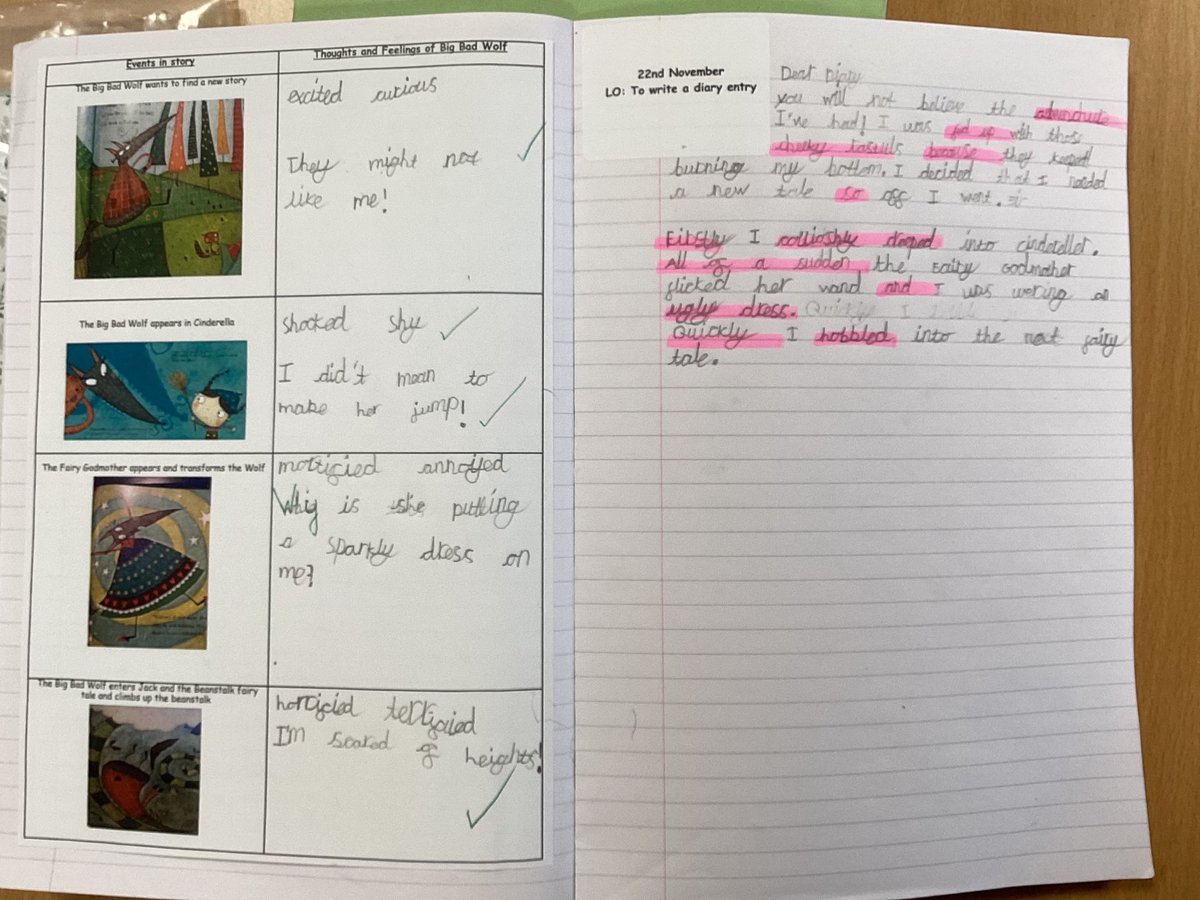 Events in story
Thoughts and Feelings of Big Bad Wolf
The Big Bad Wolf wants to find a new story
excited curious
They might not
like me!
The Big Bad Wolf appears in Cinderella
shocked shy
I did't mean to
make her jump!
The Fairy Godmother appears and transforms the Wolf
mortified annoyed
Why is she putting
a sparkly dress on
me?
The Big Bad Wolf enters Jack and the Beanstalk fairy
tale and climbs up the beanstalk
horrified terrified
I'm scared of heights!
22nd November
LO: To write a diary entry
Dear Diary
you will not believe the
I've had! I was fed up with those
cheeky they keeped
burning my bottom. I decided that I needed
a new tale so off I went.
Firstly I into cinderella.
All of a sudden the fairy Godmother
flicked her wand and I was wering a
ugly dress.
Quickly I hobbled into the next fairy
tale.